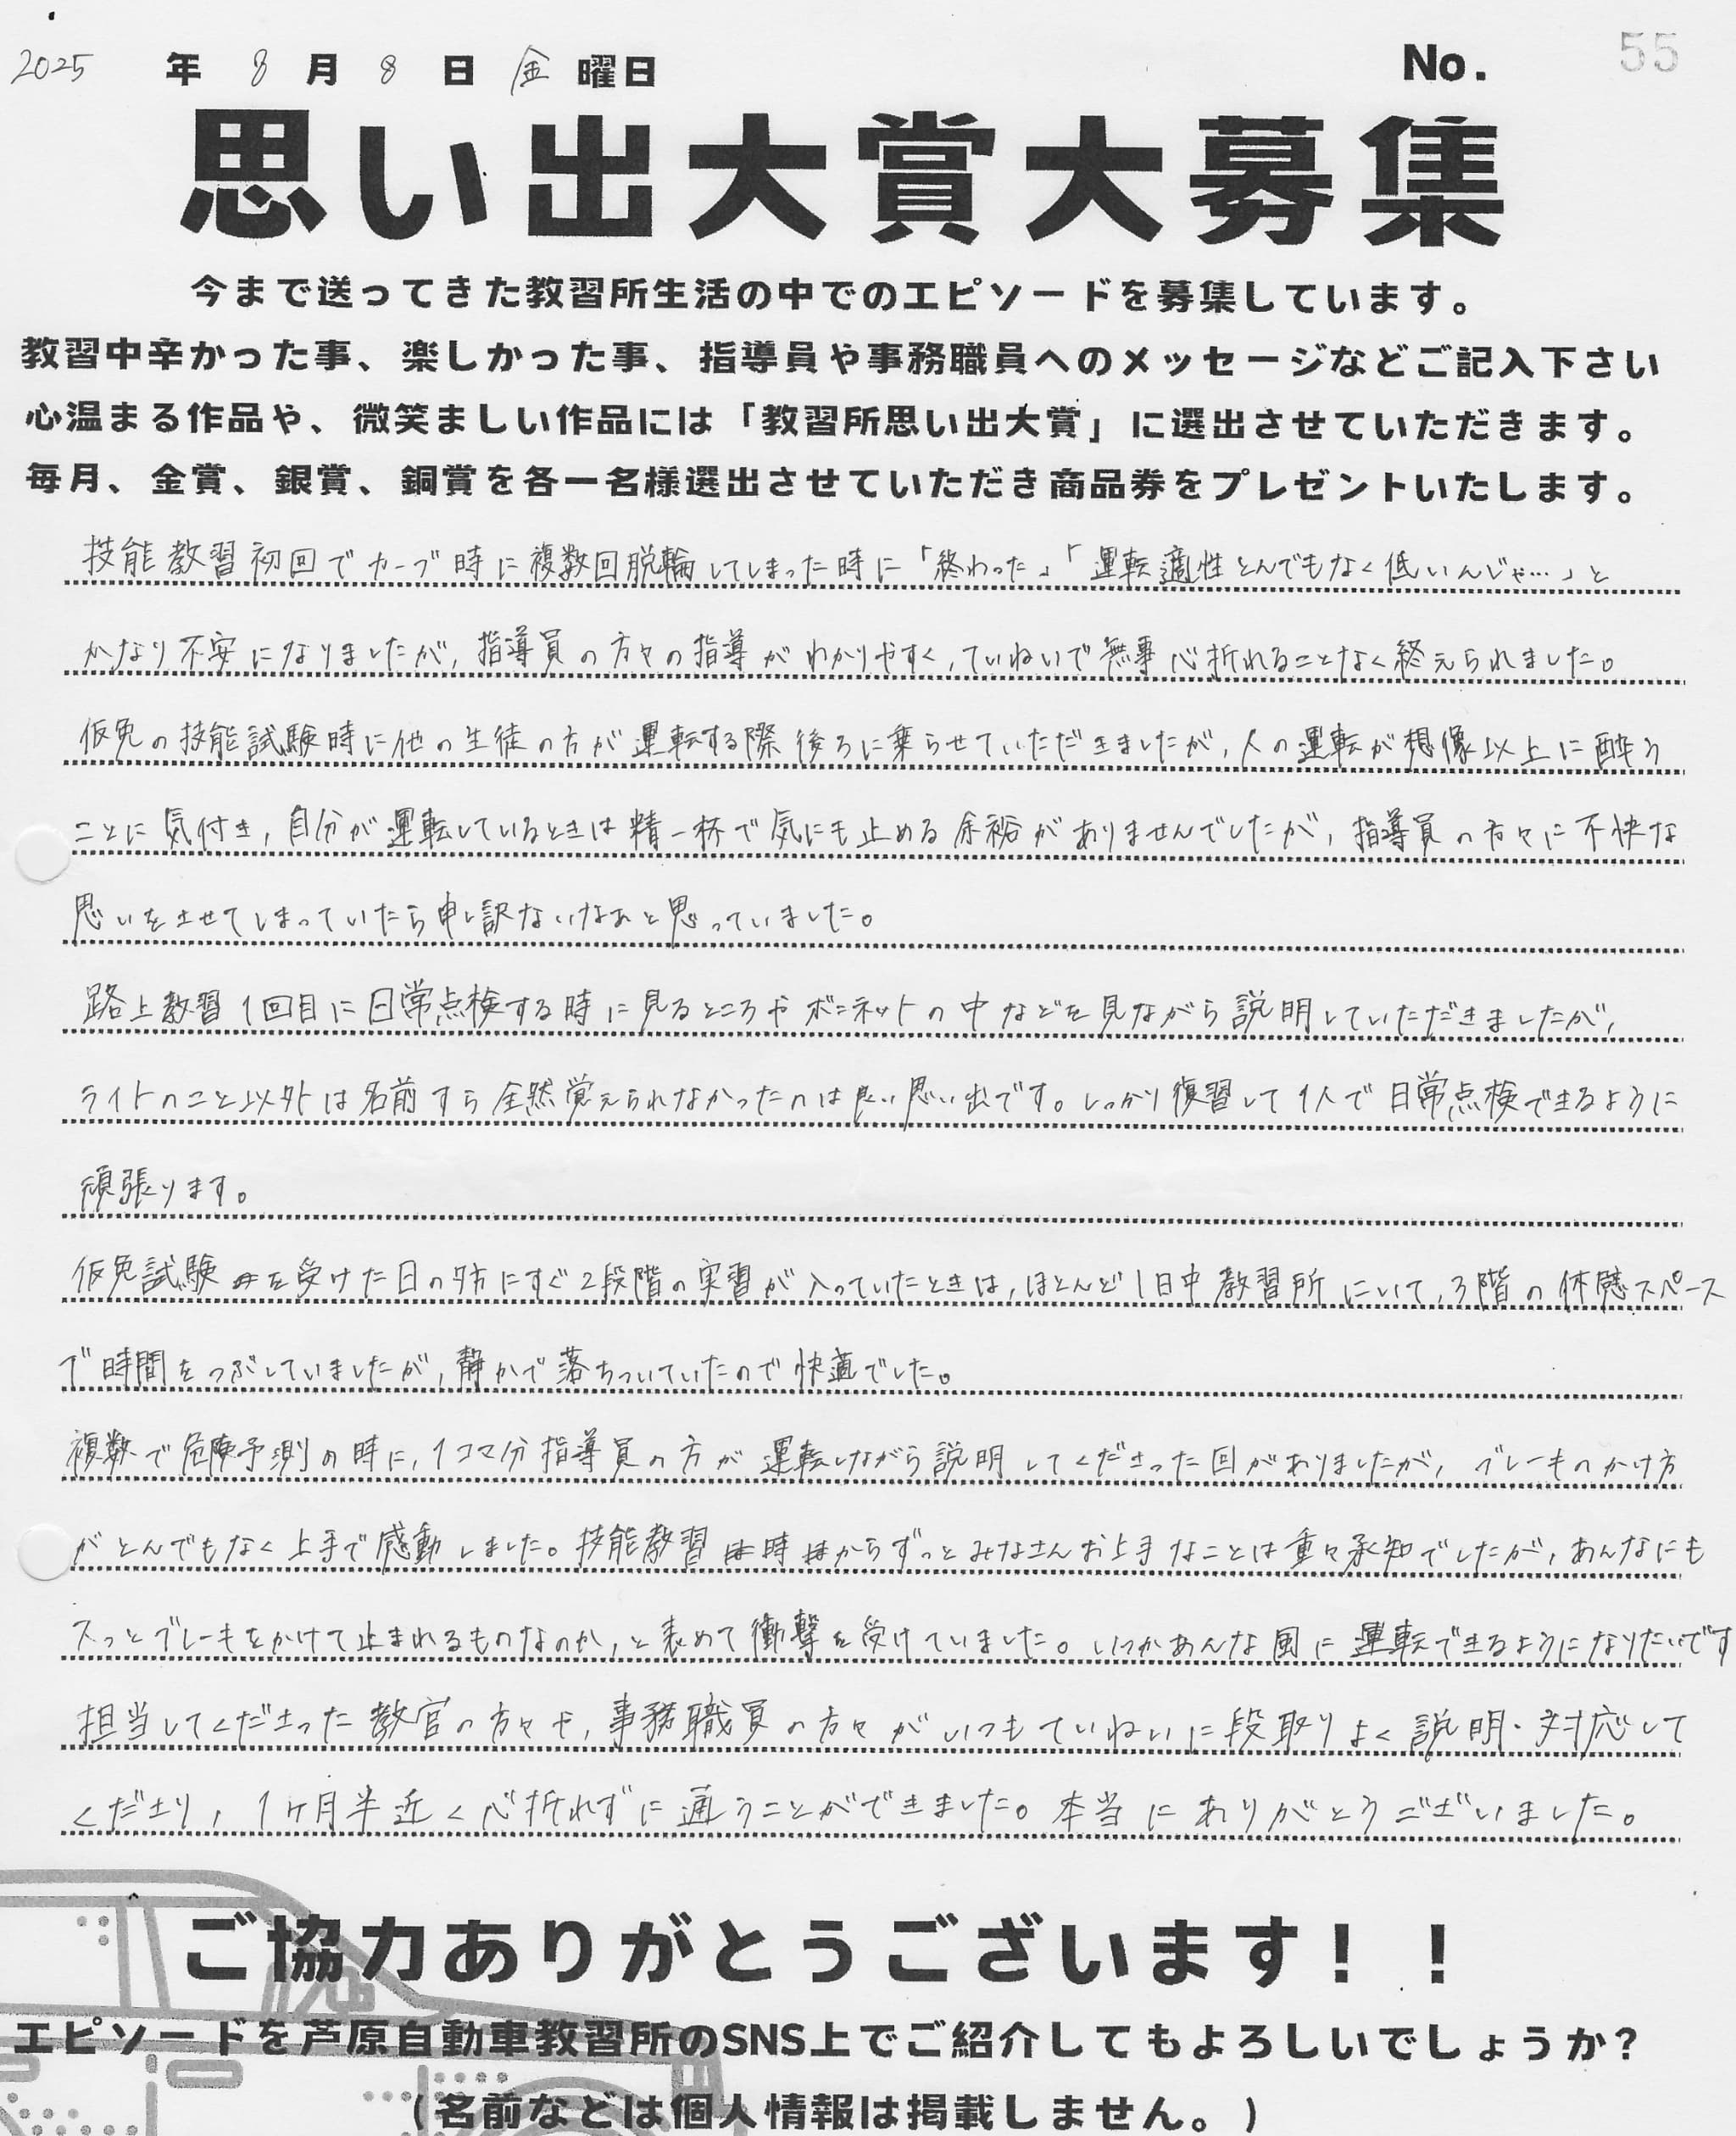 2025 年 8 月 8 日 金 曜日 No. 55
思い出大賞大募集
今まで送ってきた教習所生活の中でのエピソードを募集しています。
教習中辛かった事、楽しかった事、指導員や事務職員へのメッセージなどご記入下さい
心温まる作品や、微笑ましい作品には「教習所思い出大賞」に選出させていただきます。
毎月、金賞、銀賞、銅賞を各一名様選出させていただき商品券をプレゼントいたします。
技能教習初回でカーブ時に複数回脱輪してしまった時に「終わった」「運転適性とんでもなく低いんじゃ…」と
かなり不安になりましたが,指導員の方々の指導がわかりやすく,ていねいで無事心折れることなく終えられました。
仮免の技能試験時に他の生徒の方が運転する際後ろに乗らせていただきましたが,人の運転が想像以上に酔う
ことに気付き,自分が運転しているときは精一杯で気にも止める余裕がありませんでしたが,指導員の方々に不快な
思いをさせてしまっていたら申し訳ないなぁと思っていました。
路上教習1回目に日常点検する時に見るところやボンネットの中などを見ながら説明していただきましたが,
ライトのこと以外は名前すら全然覚えられなかったのは良い思い出です。しっかり復習して1人で日常点検できるように
頑張ります。
仮免試験を受けた日の夕方にすぐ2段階の実習が入っていたときは,ほとんど1日中教習所にいて,3階の休憩スペース
で時間をつぶしていましたが,静かで落ちついていたので快適でした。
複数で危険予測の時に,1コマ分指導員の方が運転しながら説明してくださった回がありましたが,ブレーキのかけ方
がとんでもなく上手で感動しました。技能教習時からずっとみなさんお上手なことは重々承知でしたが,あんなにも
スっとブレーキをかけて止まれるものなのか,と改めて衝撃を受けていました。いつかあんな風に運転できるようになりたいです
担当してくださった教官の方々や,事務職員の方々がいつもていねいに段取りよく説明・対応して
くださり,1ヶ月半近く心折れずに通うことができました。本当にありがとうございました。
ご協力ありがとうございます!!
エピソードを芦原自動車教習所のSNS上でご紹介してもよろしいでしょうか?
(名前などは個人情報は掲載しません。)